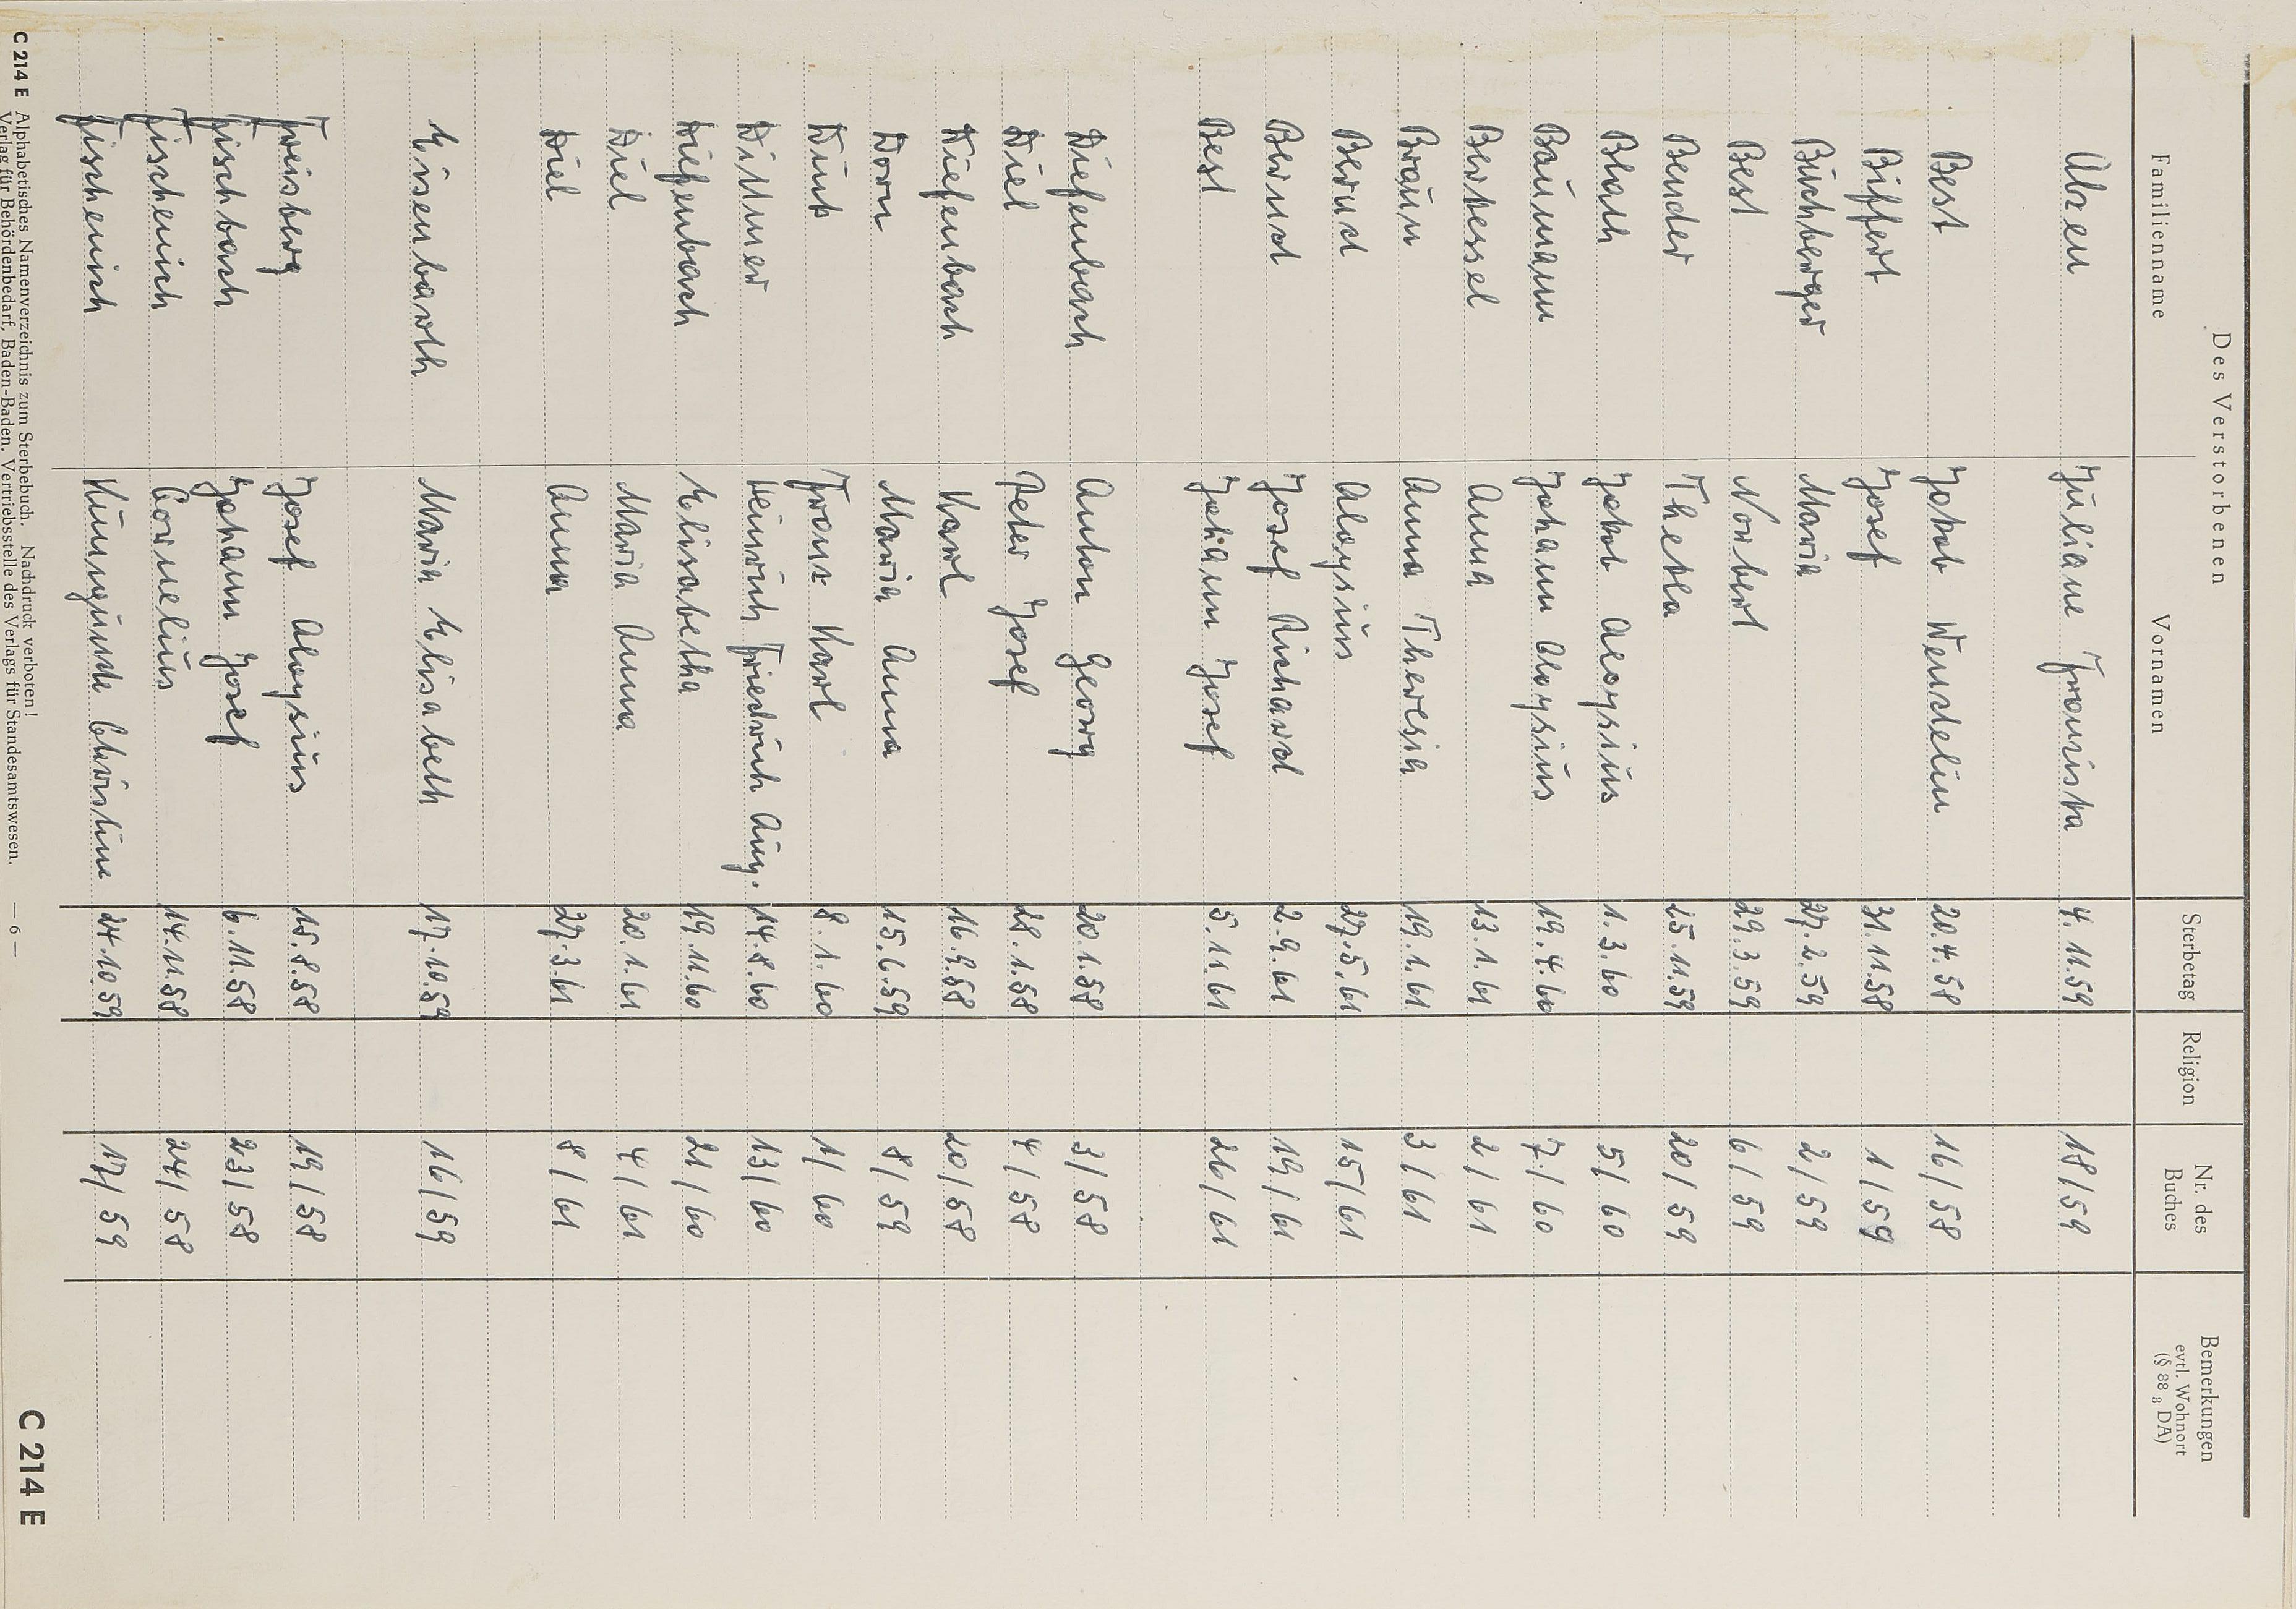 Des Verstorbenen
Familienname Vornamen Sterbetag Religion Nr. des Buches Bemerkungen evtl. Wohnort (§ 88 3 DA)
Alzen Juliane Franziska 4.11.59 18/59
Best Jakob Wendelin 20.4.58 16/58
Biffert Josef 31.11.58 1/59
Buchberger Maria 27.2.59 2/59
Best Norbert 29.3.59 6/59
Bender Thekla 25.11.59 20/59
Blath Jakob Aloysius 1.3.60 5/60
Baumann Johann Aloysius 19.4.60 7/60
Berressel Anna 13.1.61 2/61
Braun Anna Theresia 19.1.61 3/61
Bernd Aloysius 27.5.61 15/61
Bernd Josef Richard 2.9.61 19/61
Best Johann Josef 5.11.61 26/61
Diefenbach Anton Georg 20.1.58 3/58
Diel Peter Josef 28.1.58 4/58
Diefenbach Karl 16.9.58 20/58
Dorn Maria Anna 15.6.59 8/59
Dink Franz Karl 8.1.60 1/60
Dittmer Heinrich Friedrich Aug. 14.8.60 13/60
Diefenbach Elisabetha 19.11.60 21/60
Diel Maria Anna 20.1.61 4/61
Diel Anna 27.3.61 8/61
Eisenbarth Maria Elisabeth 17.10.59 16/59
Freisberg Josef Aloysius 15.8.58 19/58
Fischbach Johann Josef 6.11.58 23/58
Fischenich Cornelius 14.11.58 24/58
Fischenich Kunigunde Christine 24.10.59 17/59
C 214 E Alphabetisches Namenverzeichnis zum Sterbebuch. Nachdruck verboten! — 6 — C 214 E
Verlag für Behördenbedarf, Baden-Baden. Vertriebsstelle des Verlags für Standesamtswesen.